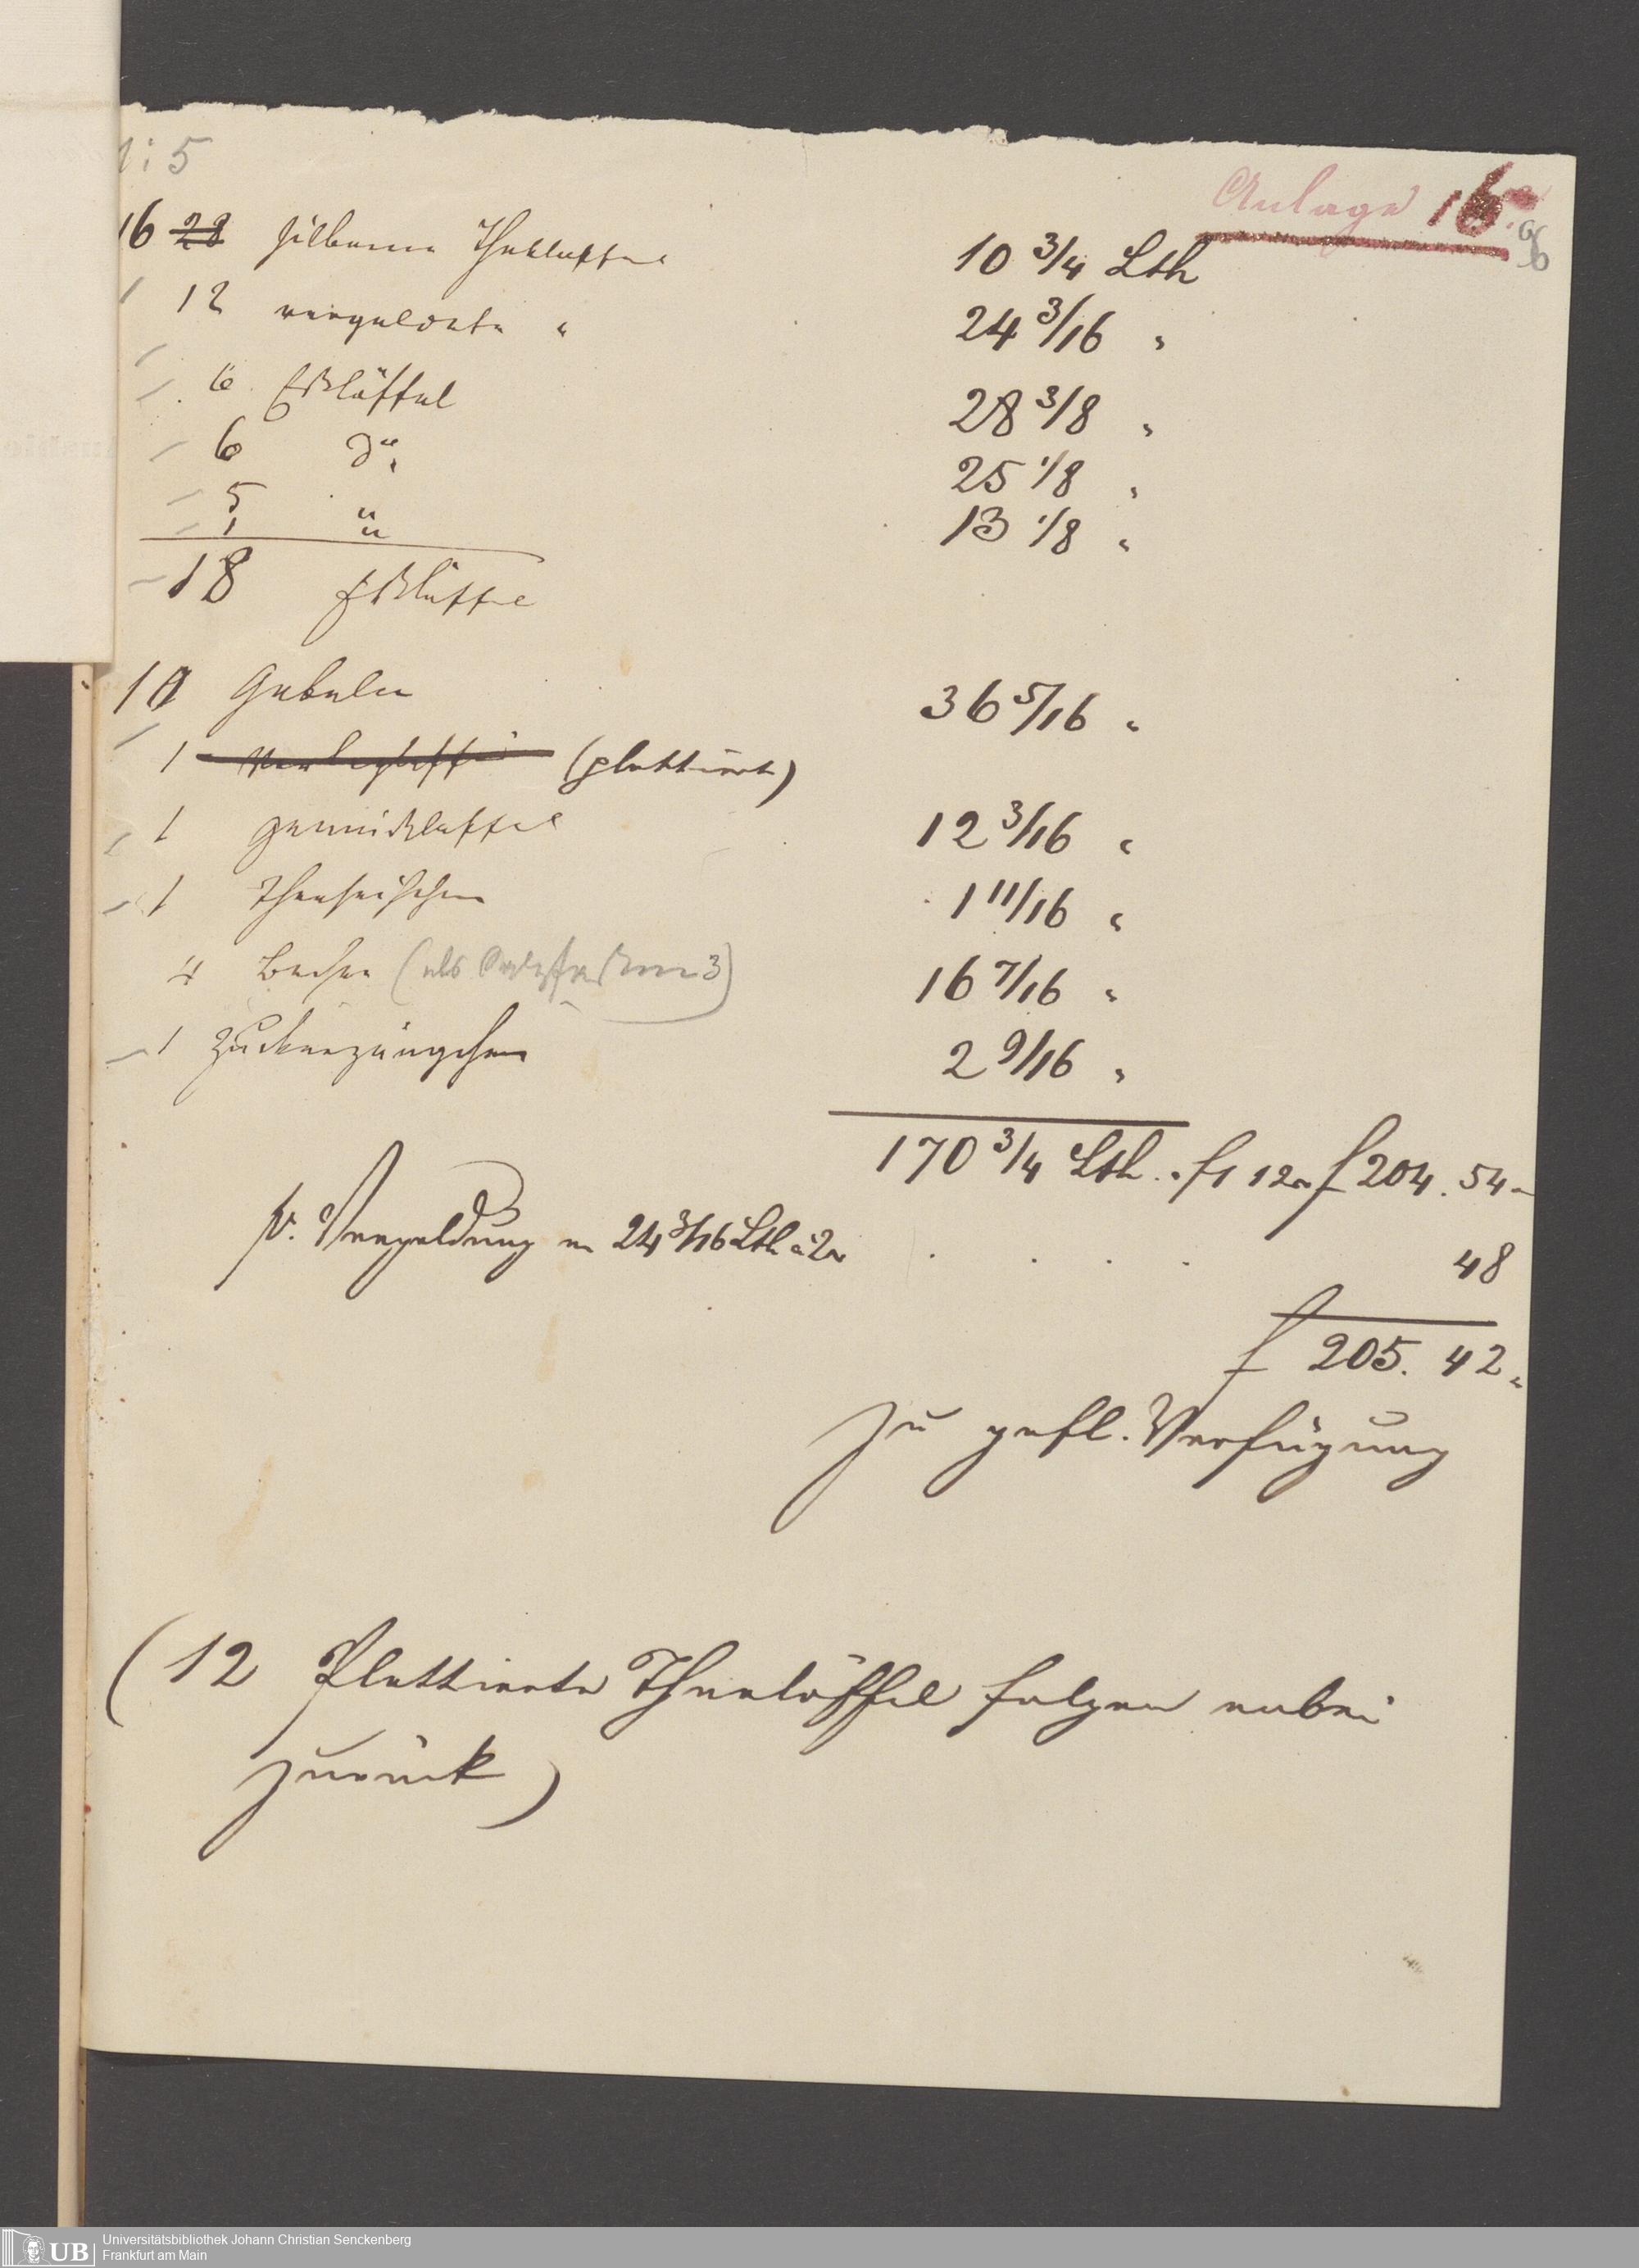 : 5
Anlage 16
96
16 28 silberne Theelöffel 10 3/4 Lth
12 vergoldete " 24 3/16 "
6 Eßlöffel 28 3/8 "
6 do. 25 1/8 "
5
1 " 13 1/8 "
18 Eßlöffel
10 Gabeln 36 5/16 "
1 Vorleglöffel (plattirt)
1 Gemüßlöffel 12 3/16 "
1 Theeseihchen 1 11/16 "
4 Becher (als Salzfässer 3) 16 7/16 "
1 Zuckerzängchen 2 9/16 "
170 3/4 Lth. " f 1 12 " f 204. 54 "
p. Vergoldung 24 3/16 Lth à 2 . . . . 48
f 205. 42 "
Zu gefl. Verfügung
(12 Plattierte Theelöffel folgen anbei
zurück)
UB Universitätsbibliothek Johann Christian Senckenberg
Frankfurt am Main